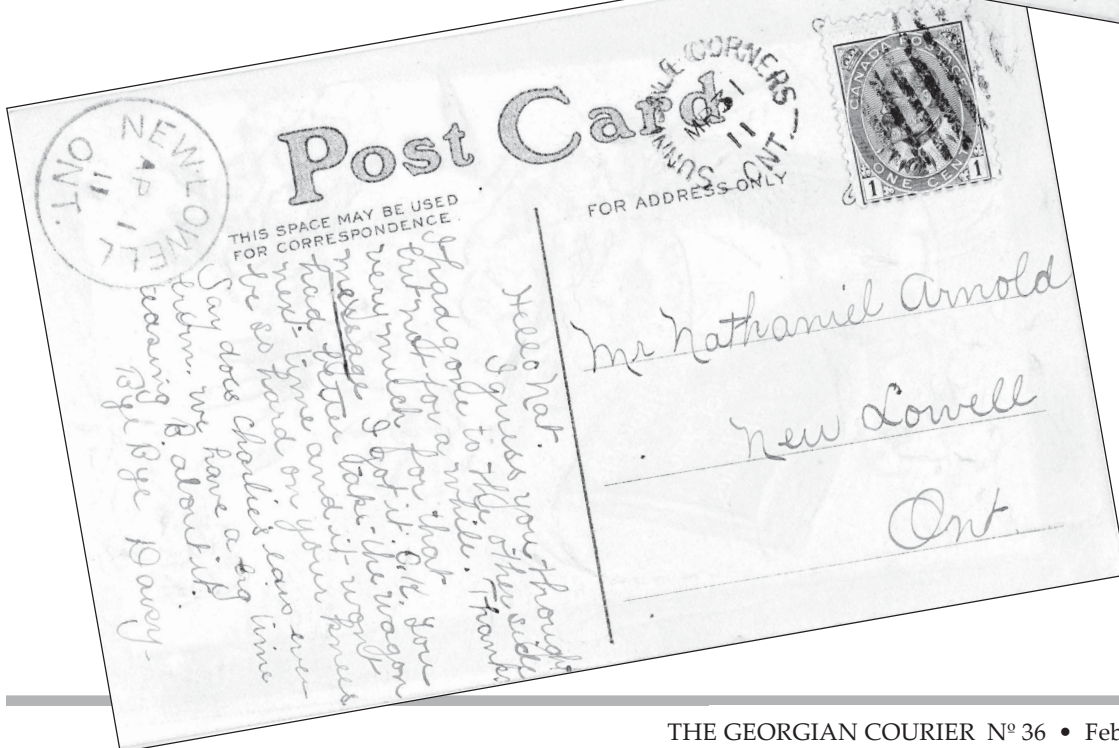 Post Card
NEW LOWELL
AP 1
11
ONT.
SUNNIDALE CORNERS
MR 31
11
ONT
CANADA POSTAGE
ONE CENT
1 1
THIS SPACE MAY BE USED
FOR CORRESPONDENCE.
FOR ADDRESS ONLY
Hello Nat.
I guess you though
I had gone to the other side
but not for a while. Thanks
very much for that
message I got it O.K. You
had better take the wagon
next time and it wont
be so hard on your knees
Say does Charlies ears ever
burn, we have a big time
teasing B about it.
Bye Bye Daisy-
Mr Nathaniel Arnold
New Lowell
Ont.
THE GEORGIAN COURIER Nº 36 • Feb